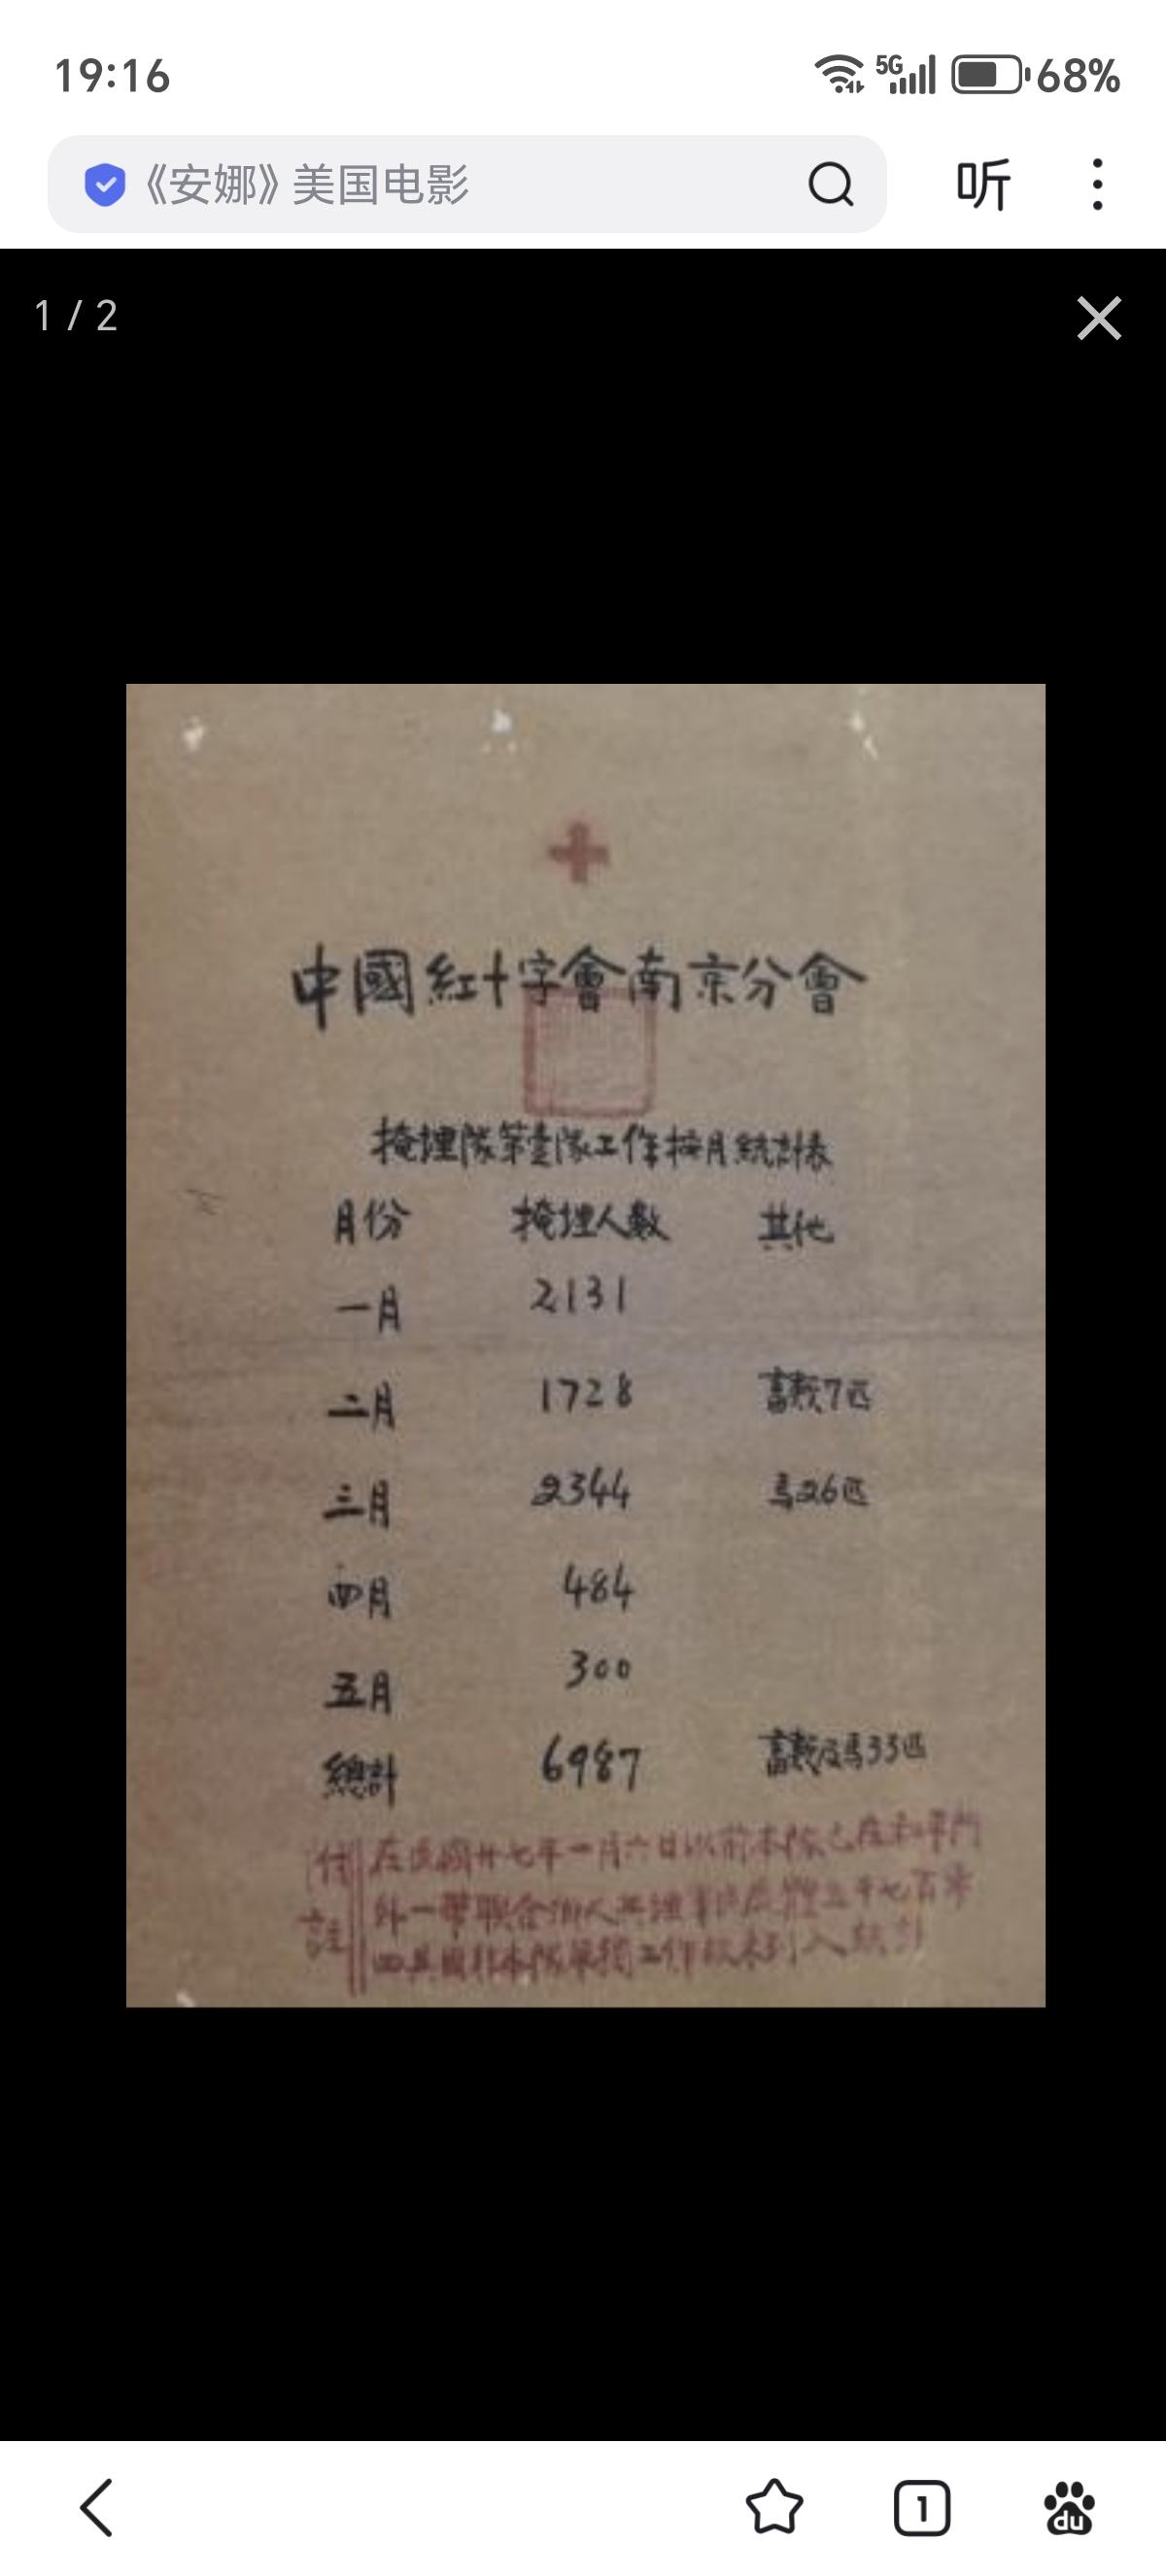 19:16
5G 68%
《安娜》美国电影
听
1 / 2
中國紅十字會南京分會
掩埋隊第壹隊工作按月統計表
月份 掩埋人數 其他
一月 2131
二月 1728 7匹
三月 2344 馬26匹
四月 484
五月 300
總計 6987 及馬33匹
付註
在民國廿七年一月六日以前本隊已在和平門
外一帶聯合 人共埋 三千七百零
四具 本隊 工作 未列入統計
1
du